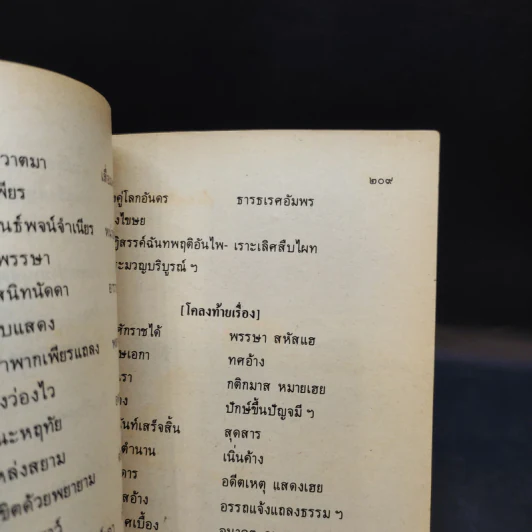 วาตมา
เพียร
นธ์พจน์จำเนียร
พรรษา
สนิทนัดดา
บแสดง
าพากเพียรแถลง
งว่องไว
นะหฤทัย
หล่งสยาม
ขิตด้วยพยายาม
๒๐๙
คู่โลกอันดร ธารธเรศอัมพร
งไขษย
ฎิสรรค์ฉันทพฤติอันไพ- เราะเลิศสืบไผท
ระมวญบริบูรณ์ ฯ
[โคลงท้ายเรื่อง]
ศักราชได้ พรรษา สหัสแฮ
ษเอกา ทศอ้าง
เรา กติกมาส หมายเฮย
าง ปักษ์ขึ้นปัญจมี ฯ
นท์เสร็จสิ้น สุดสาร
ตำนาน เนิ่นค้าง
การ อดีตเหตุ แสดงเฮย
สอ้าง อรรถแจ้งแถลงธรรม ฯ
ศเบื้อง